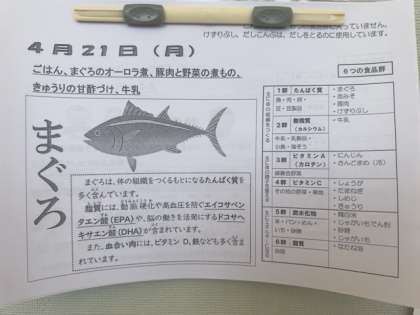 入っていません。
けずりぶし、だしこんぶは、だしをとるのに使用しています。
4月21日（月）
ごはん、まぐろのオーロラ煮、豚肉と野菜の煮もの、
きゅうりの甘酢づけ、牛乳
まぐろ
まぐろは、体の組織をつくるもとになるたんぱく質を
多く含んでいます。
脂質には、動脈硬化や高血圧を防ぐエイコサペン
タエン酸(EPA)や、脳の働きを活発にするドコサヘ
キサエン酸(DHA)が含まれています。
また、血合い肉には、ビタミンD、鉄なども多く含ま
れています。
6つの食品群
1群 たんぱく質
魚・肉・卵・
豆・豆製品
・まぐろ
・赤みそ
・豚肉
・けずりぶし
2群 無機質
（カルシウム）
牛乳・乳製品・
小魚・海そう
・牛乳
3群 ビタミンA
（カロテン）
緑黄色野菜
・にんじん
・さんどまめ（冷）
4群 ビタミンC
その他の野菜・果物
・しょうが
・たまねぎ
・しめじ
・きゅうり
5群 炭水化物
米・パン・めん・
いも・砂糖
・精白米
・じゃがいもでん粉
・砂糖
・じゃがいも
6群 脂質
・なたね油